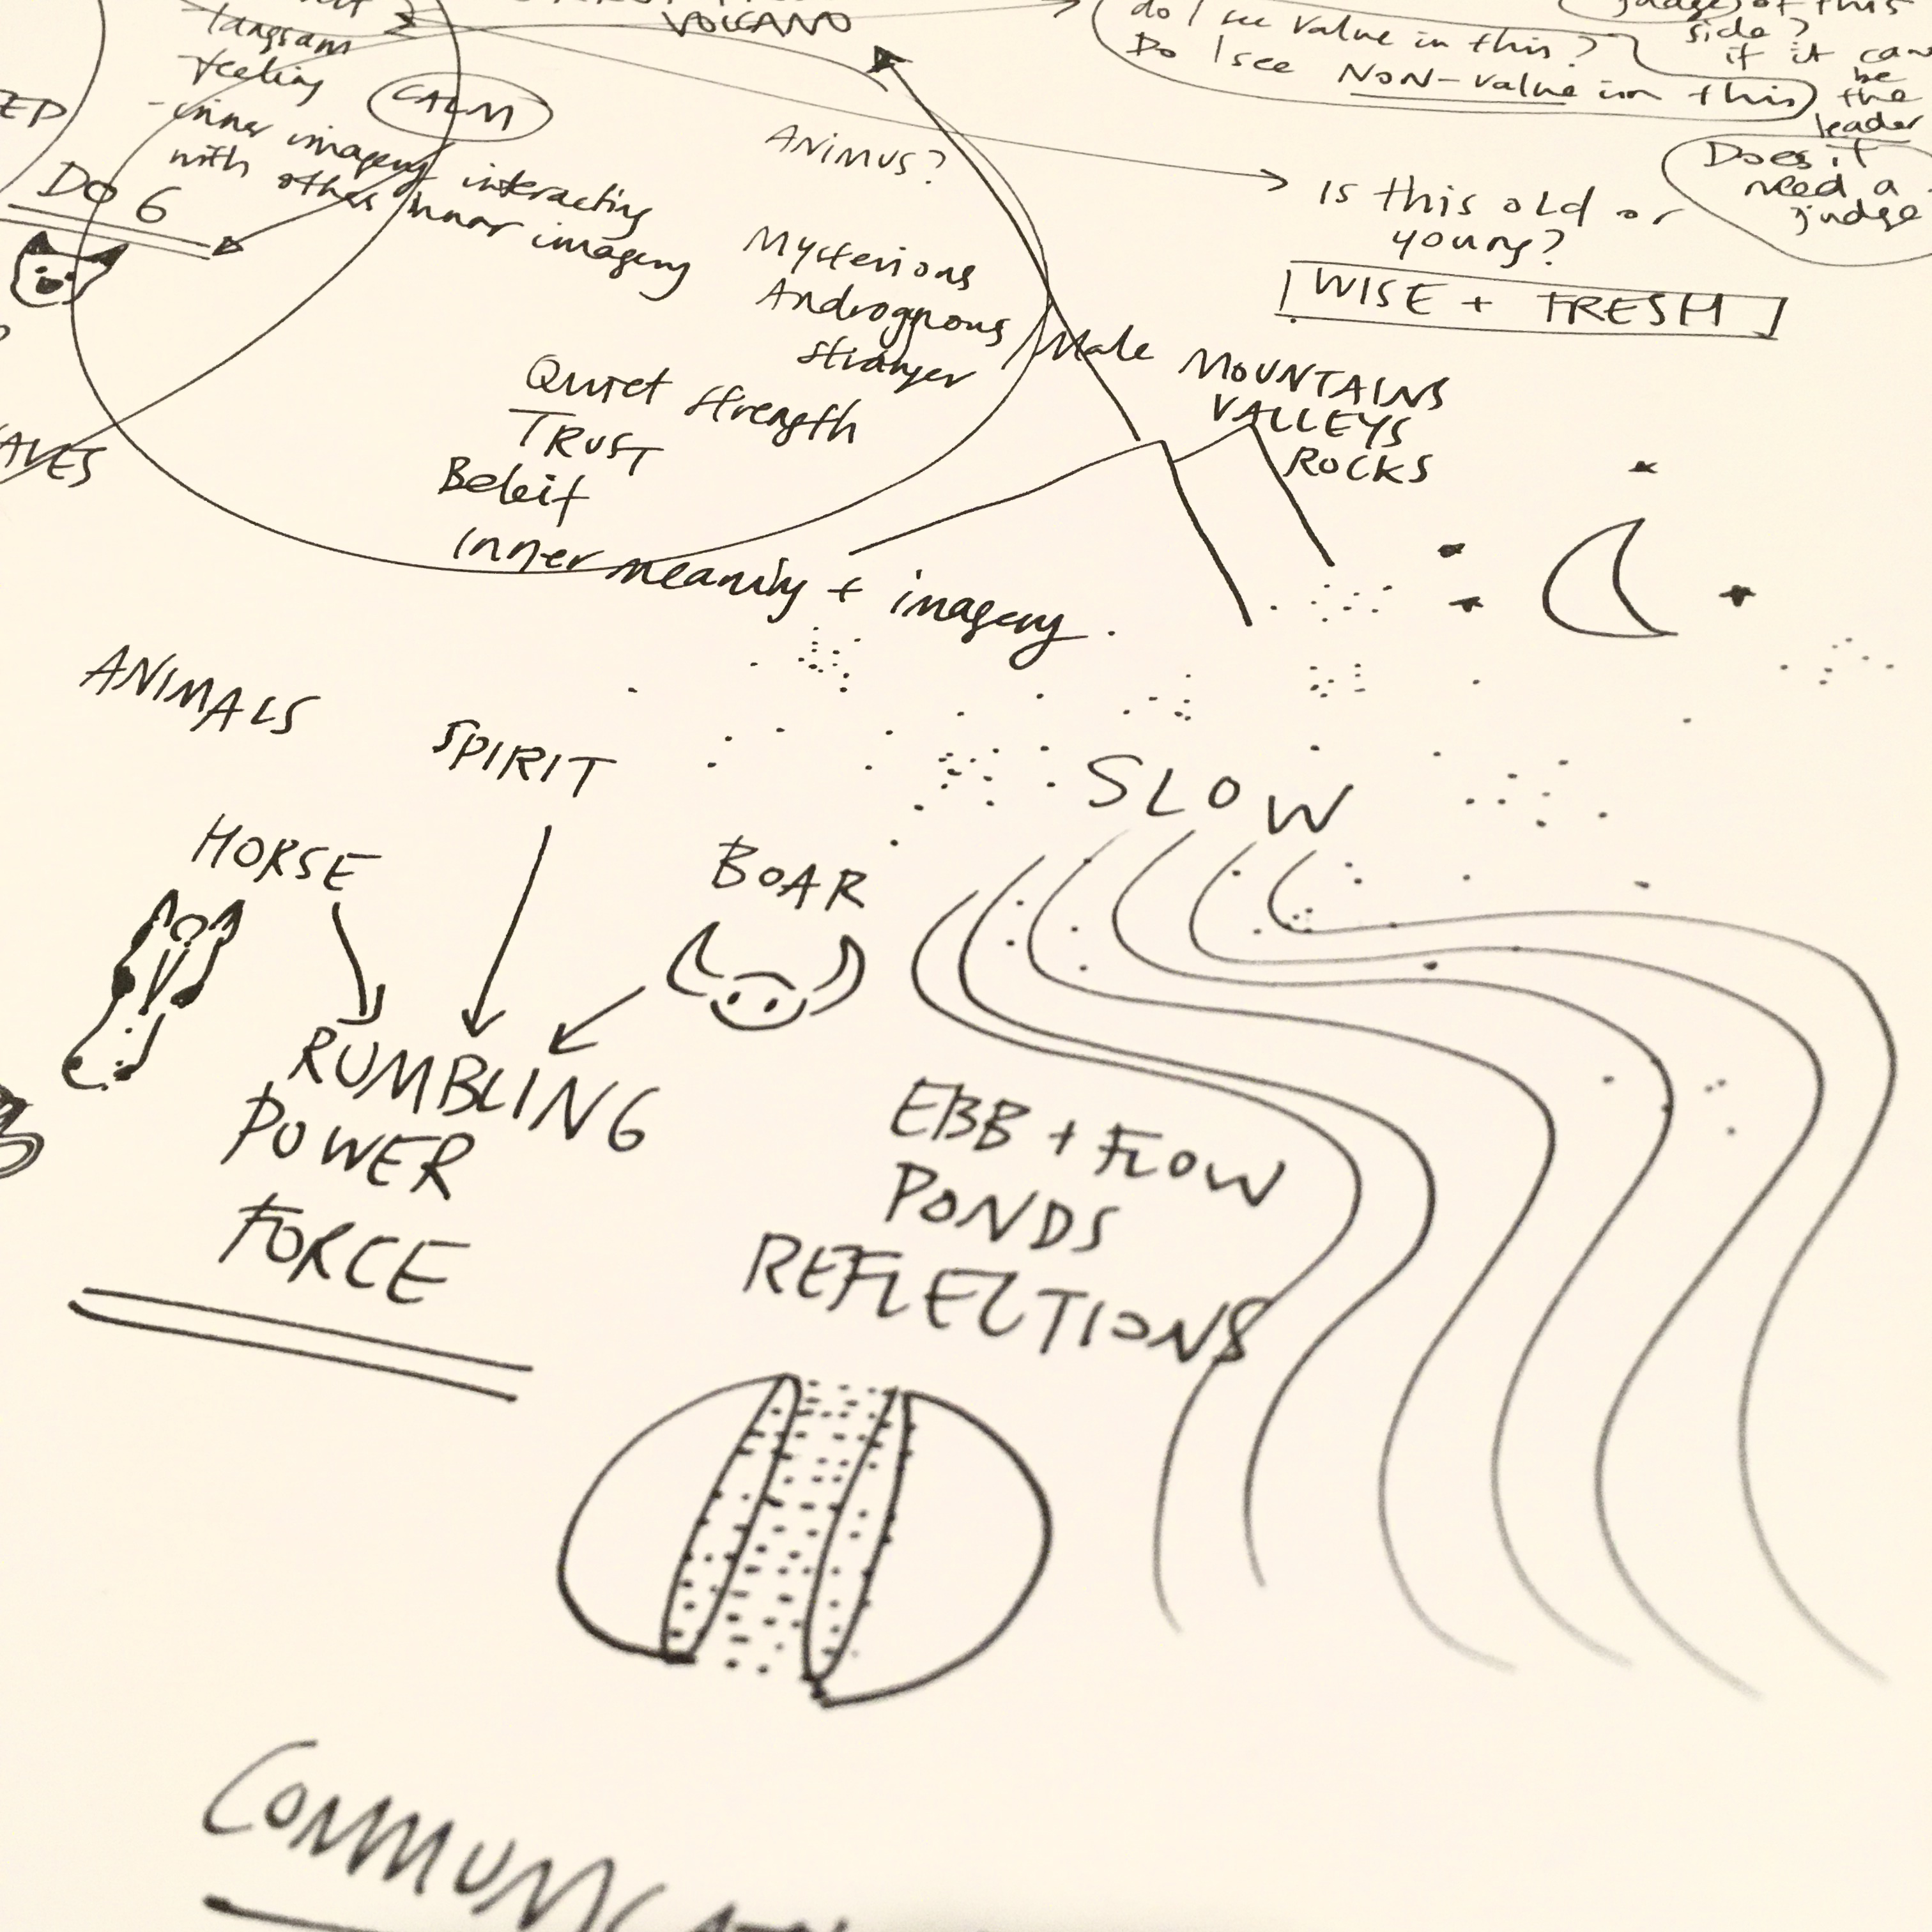 VOLCANO
langsam
feeling
CALM
-inner imagery interacting
with other inner imagery
DO 6
ANIMUS?
Mysterious
Androgynous
stranger / Male
Quiet strength
TRUST
Beleif
inner meaning + imagery.
do I see value in this?
Do I see NON-value in this
side?
if it can
be
the
leader
Does it
need a
judge
Is this old or
young?
WISE + FRESH
MOUNTAINS
VALLEYS
ROCKS
ANIMALS
SPIRIT
SLOW
HORSE
BOAR
RUMBLING
POWER
FORCE
EBB + FLOW
PONDS
REFLECTIONS